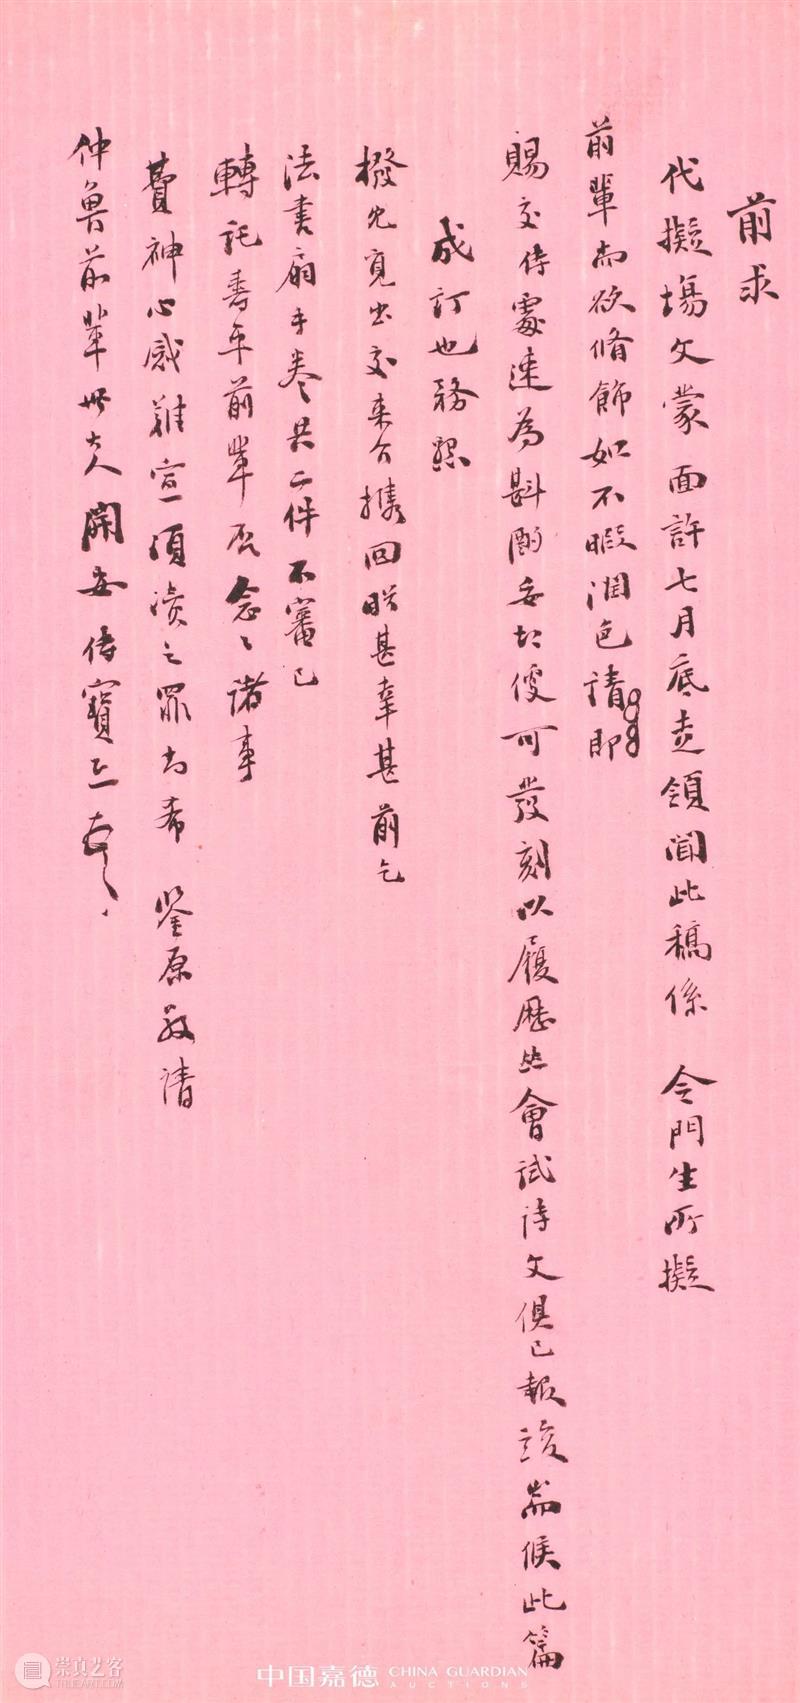 前求
代擬場文蒙面許七月底走領聞此稿係 令門生所擬
前輩尚欲脩飾如不暇潤色請即
賜交侍處速為斟酌妥切便可發刻以履歷並會試詩文俱已報竣耑候此篇
成訂也務懇
撥冗覓出交來介攜回眎甚幸甚前乞
法書扇手卷共二件不審已
轉託壽平前輩否念念諸事
費神心感難宣瀆之罪尚希 鑒原敬請
仲魯前輩世大人開安侍寶
崇真艺客
中国嘉德 CHINA GUARDIAN
AUCTIONS